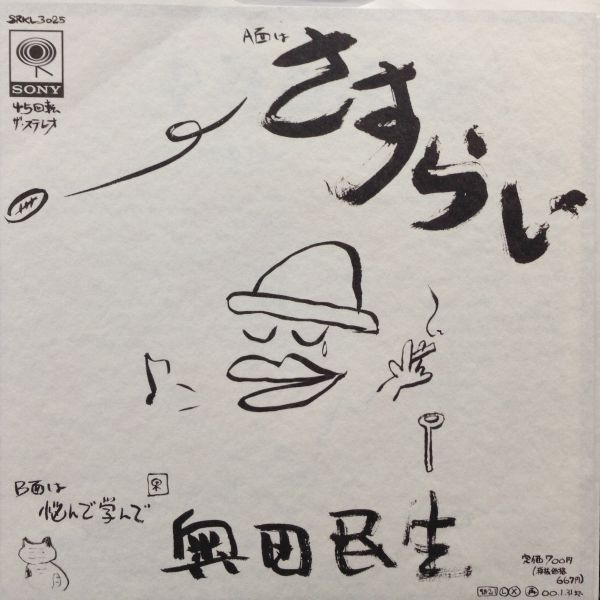 SRKL 3025
SONY
45回転
ザ・ステレオ
A面は
さすらい
B面は
悩んで学んで
奥田民生
定価700円
(税抜価格
667円)
LX
再
00.1.31